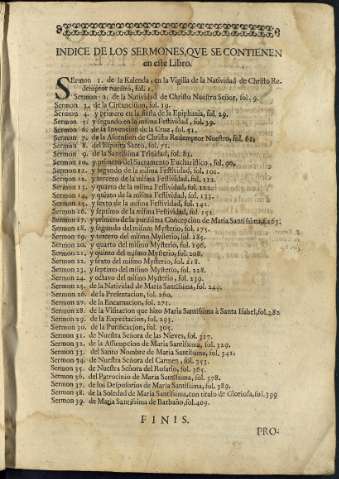 INDICE DE LOS SERMONES, QUE SE CONTIENEN
en este Libro.
Sermon 1. de la Kalenda, en la Vigilia de la Natividad de Christo Re-
demptor nuestro, fol. 1.
Sermon 2. de la Natividad de Christo Nuestro Señor, fol. 9.
Sermon 3. de la Circuncision, fol. 19.
Sermon 4. y primero en la fiesta de la Epiphania, fol. 29.
Sermon 5. y segundo en la misma Festividad, fol. 39.
Sermon 6. de la Invencion de la Cruz, fol. 51.
Sermon 7. de la Ascension de Christo Redemptor Nuestro, fol. 62.
Sermon 8. del Espiritu Santo, fol. 71.
Sermon 9. de la Santissima Trinidad, fol. 81.
Sermon 10. y primero del Sacramento Eucharistico, fol. 90.
Sermon 11. y segundo de la misma Festividad, fol. 101.
Sermon 12. y tercero de la misma Festividad, fol. 112.
Sermon 13. y quarto de la misma Festividad, fol. 122.
Sermon 14. y quinto de la misma Festividad, fol. 133.
Sermon 15. y sexto de la misma Festividad, fol. 142.
Sermon 16. y septimo de la misma Festividad, fol. 151.
Sermon 17. y primero de la purissima Concepcion de Maria Santissima, fol. 163.
Sermon 18. y segundo del mismo Mysterio, fol. 175.
Sermon 19. y tercero del mismo Mysterio, fol. 185.
Sermon 20. y quarto del mismo Mysterio, fol. 196.
Sermon 21. y quinto del mismo Mysterio, fol. 208.
Sermon 22. y sexto del mismo Mysterio, fol. 218.
Sermon 23. y septimo del mismo Mysterio, fol. 228.
Sermon 24. y octavo del mismo Mysterio, fol. 239.
Sermon 25. de la Natividad de Maria Santissima, fol. 249.
Sermon 26. de la Presentacion, fol. 260.
Sermon 27. de la Encarnacion, fol. 271.
Sermon 28. de la Visitacion que hizo Maria Santissima à Santa Isabel, fol. 282
Sermon 29. de la Expectacion, fol. 293.
Sermon 30. de la Purificacion, fol. 305.
Sermon 31. de Nuestra Señora de las Nieves, fol. 317.
Sermon 32. de la Assumpcion de Maria Santissima, fol. 329.
Sermon 33. del Santo Nombre de Maria Santissima, fol. 342.
Sermon 34. de Nuestra Señora del Carmen, fol. 353.
Sermon 35. de Nuestra Señora del Rosario, fol. 365.
Sermon 36. del Patrocinio de Maria Santissima, fol. 378.
Sermon 37. de los Desposorios de Maria Santissima, fol. 389.
Sermon 38. de la Soledad de Maria Santissima, con titulo de Gloriosa, fol. 399
Sermon 39. de Maria Santissima de Barbaño, fol. 409.
FINIS.
PRO-